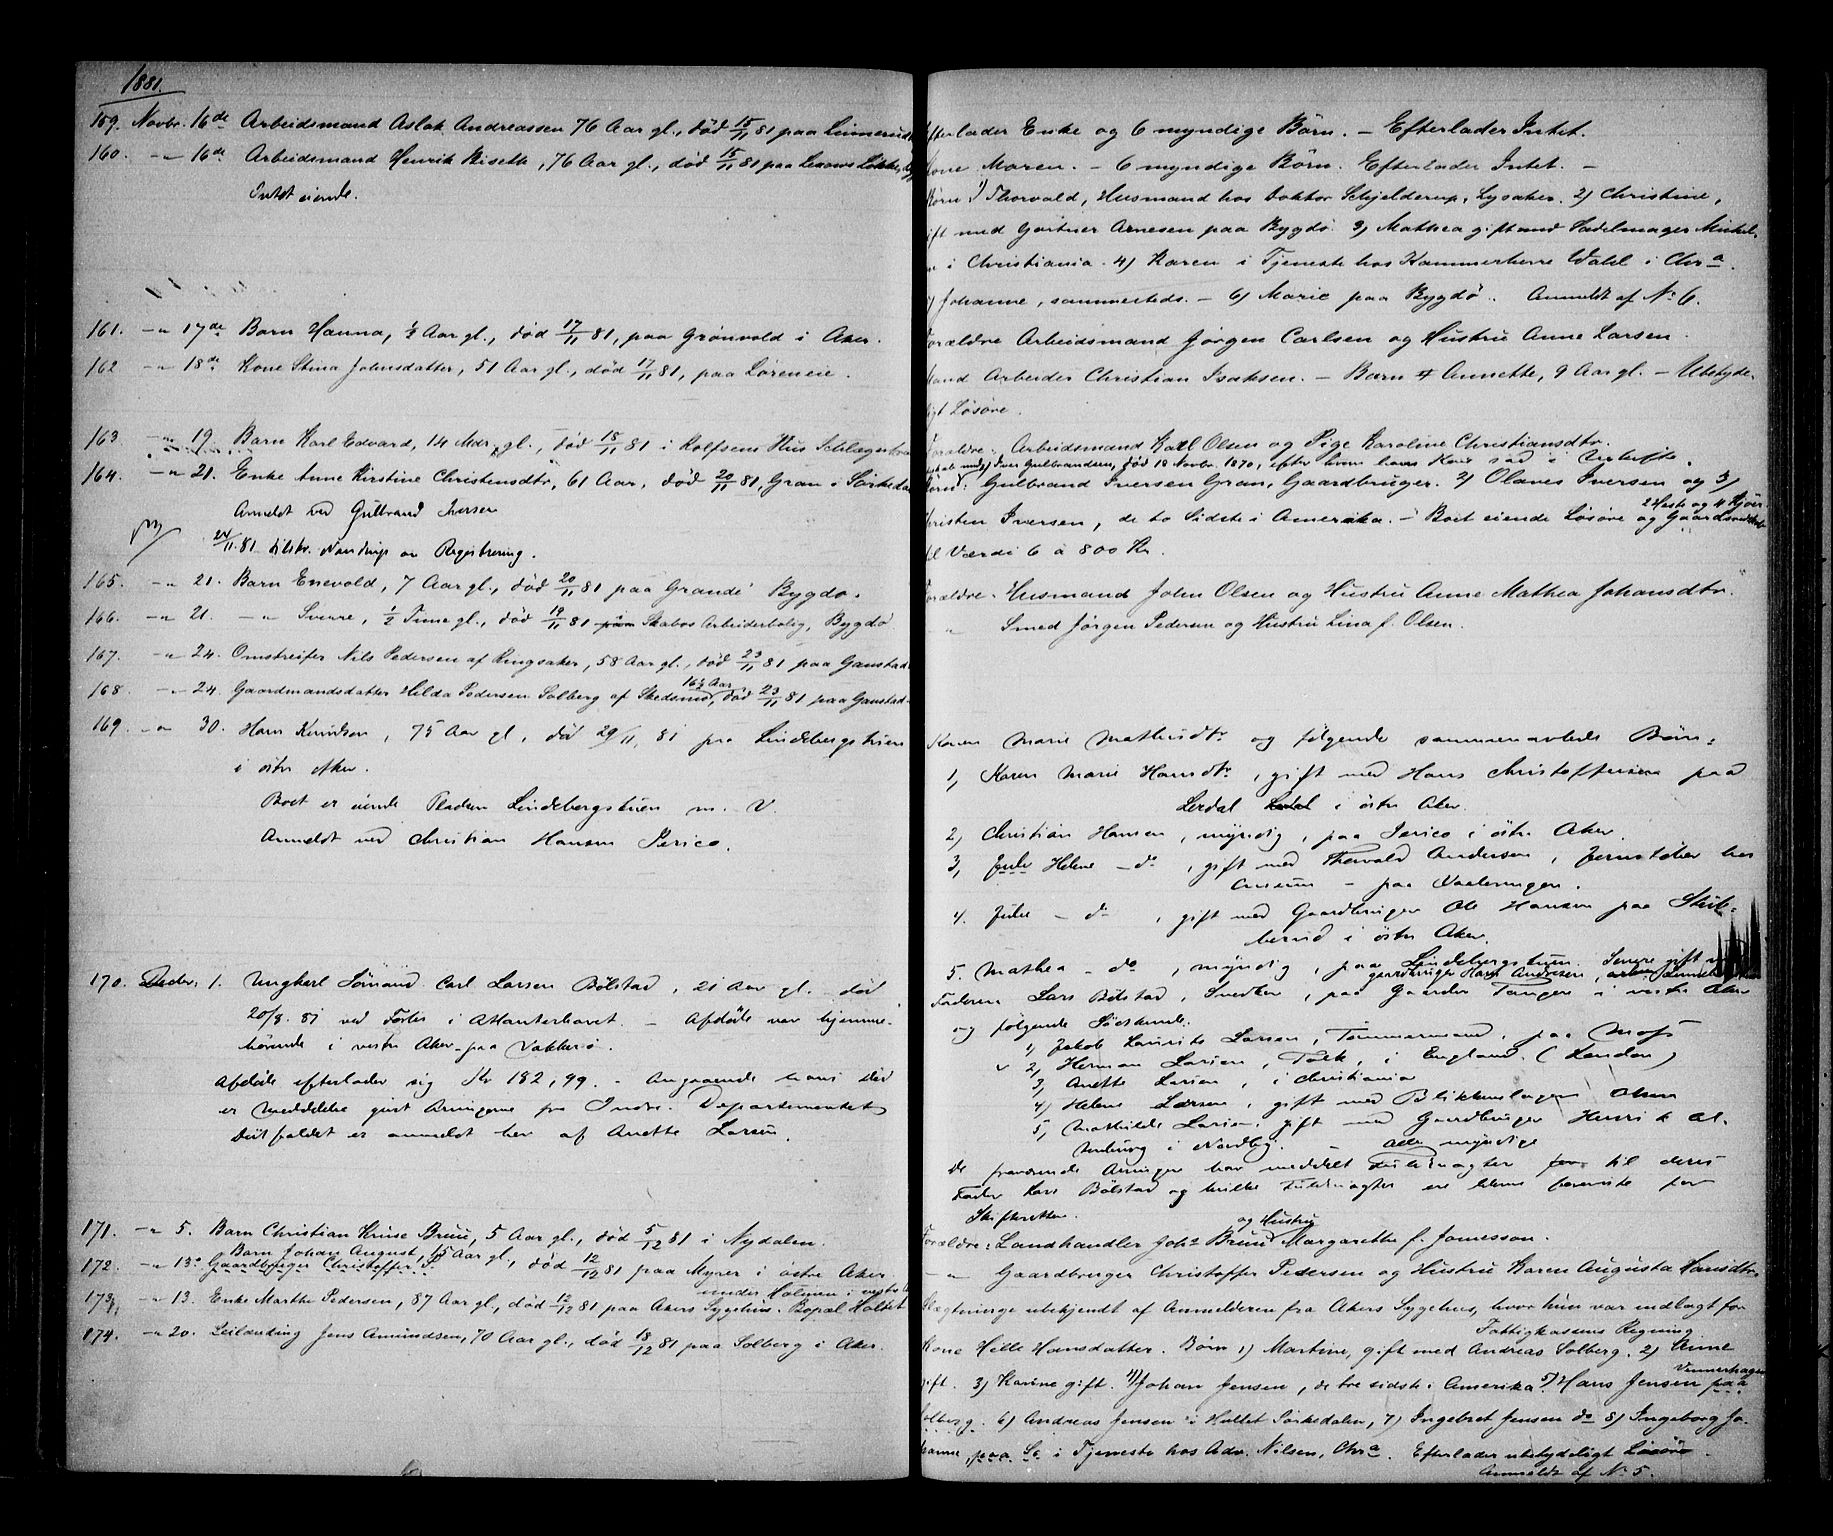 1881.
159. Novbr. 16de Arbeidsmand Aslak Andreassen 76 Aar gl., død 15/11 81 paa Linnerud
160. -"- 16de Arbeidsmand Henrik Nisette, 76 Aar gl., død 15/11 81 paa
Intet eiende.
161. -"- 17de Barn Hanna, 1/2 Aar gl., død 17/11 81, paa Grønvold i Aker.
162 -"- 18de Kone Stina Johnsdatter, 51 Aar gl., død 17/11 81, paa Løreneie.
163 -"- 19. Barn Karl Edvard, 14 Mdr. gl., død 18/11 81 i Rolfsens Hus
164. -"- 21. Enke Anne Kirstine Christensdtr, 61 Aar, død 20/11 81, Gran i Sørkeda
Anmeldt ved Gulbrand Iversen
24/11.81. tilskr. Nandrup om Registrering.
165. -"- 21. Barn Enevold, 7 Aar gl., død 20/11 81 paa Grande Bygdø.
166. -"- 21. -"- Sverre, 1/2 Time gl., død 19/11 81 paa Skabos Arbeiderbolig, Bygdø
167. -"- 24. Omstreifer Nils Pedersen af Ringsaker, 58 Aar gl., død 23/11 81 paa Gaustad
168. -"- 24. Gaardmandsdatter Hilda Pedersen Solberg af Skedsmo, 16 1/2 Aar død 23/11 81 paa Gaustad
169. -"- 30. Hans Knudsen, 75 Aar gl, død 29/11 81 paa Lindebergstuen
i østre Aker.
Boet er eiende Pladsen Lindebergstuen m. V.
Anmeldt ved Christian Hansen Jerico.
170. Decbr. 1. Ungkarl Sømand Carl Larsen Bølstad, 21 Aar gl. død
20/8. 81 ved Forlis i Atlanterhavet. - Afdøde var hjemme-
hørende i vestre Aker paa Vækkerø.
Afdøde efterlader sig Kr 182,99. - Angaaende hans Død
er meddelelse givet Arvingerne fra Indre. Departementet
Dødsfaldet er anmeldt her af Anette Larsen.
171. -"- 5. Barn Christian Kruse Bruu, 5 Aar gl., død 5/12 81 i Nydalen.
Barn Johan August, 15 Aar gl,
172. -"- 13. Gaardbruger Christoffer P. død 12/12 81 paa Myrer i østre Aker
under Holmen i vestre A
173. -"- 13. Enke Marthe Pedersen, 87 Aar gl., død 12/12 81 paa Akers Sygehus. Bopæl Holtet
174. -"- 20. Leilænding Jens Amundsen, 70 Aar gl., død 18/12 81 paa Solberg i Aker.
Efterlader Enke og 6 myndige Børn. - Efterlader Intet.
Kone Maren. - 6 myndige Børn. Efterlader Intet. -
Børn 1) Thorvald, Husmand hos Doktor Schjelderup, Lysaker. 2) Christine,
gift med Gartner Arnesen paa Bygdø. 3) Mathea gift med Sadelmager Mikkel-
sen i Christiania. 4) Karen i Tjeneste hos Kammerherre Wahl i Chra.
5) Johanne, sammesteds. - 6) Marie paa Bygdø. Anmeldt af No 6.
Forældre Arbeidsmand Jørgen Carlsen og Hustru Anne Larsen.
Mand Arbeider Christian Isaksen. - Barn Annette, 9 Aar gl. - Ubetyde-
ligt Løsøre.
Forældre: Arbeidsmand Karl Olsen og Pige Karoline Christiansdtr.
Iver Gulbrandsen, død 18 Novbr. 1870, efter hvem hans Kone sad i Uskifte.
Børn: Gulbrand Iversen Gran, Gaardbruger. 2) Olaves Iversen og 3)
2 Heste og 4 Kjør
Christen Iversen, de to Sidste i Amerika. - Boet eiende Løsøre og Gaardsredskab
til Værdi 6 a 800 Kr.
Forældre: Husmand John Olsen og Hustru Anne Mathea Johansdtr.
" Smed Jørgen Pedersen og Hustru Lina f. Olsen.
Karen Marie Mathisdtr og følgende sammenavlede Børn:
1, Karen Marie Hansdtr, gift med Hans Christoffersen paa
Lerdal i østre Aker.
2) Christian Hansen, myndig, paa Jerico i østre Aker.
3, Helene -do, gift med Thorvald Andersen, hos
- paa Vaaleringen.
4. Julie - do, gift med Gaardbruger Ole Hansen paa Stub-
berud i østre Aker.
5. Mathea - do, myndig, paa Lindebergstuen. Senere gift med
gaardbruger Hans Andersen,
Faderen Lars Bølstad, Snedker, paa Gaarden Tangen i vestre Aker
og følgende Sødskende:
1, Jakob Laurits Larsen, Tømmermand, paa Moss
v 2, Herman Larsen, Tolk, i England. (London)
3, Anette Larsen, i Christiania
4) Helene Larsen, gift med Blikkenslager Olsen
5, Mathilde Larsen, gift med Gaardbruger Henrik
i Nordby. - Alle myndige
De fraværende Arvinger har meddelt Fuldmagter til deres
Fader Lars Bølstad og hvilke Fuldmagter ere blevne foreviste for
Skifteretten.
og Hustru
Forældre: Landhandler Johs Bruu Margarethe f. Jonesson.
-"- Gaardbruger Christoffer Pedersen og Hustru Karen Augusta Hansdtr.
Slægtninge ubekjendt af Anmelderen fra Akers Sygehus, hvor hun var indlagt for
Fattigkassens Regning
Kone Hille Hansdatter. Børn 1) Martine, gift med Andreas Solberg. 2) Anne
gift. 3) Karine gift. 4) Johan Jensen, de tre sidste i Amerika 5) Hans Jensen paa
Solberg. 6) Andreas Jensen i Hullet Sørkedalen, 7) Ingebret Jensen do 8) Ingeborg Jo-
hanne, paa i Tjeneste hos Adv. Nilsen, Chra. Efterlader ubetydeligt Løsøre.
Anmeldt af No 5.